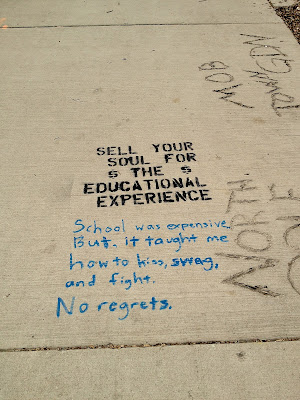 SELL YOUR
SOUL FOR
$ THE $
EDUCATIONAL
EXPERIENCE
School was expensive.
But, it taught me
how to kiss, swag,
and fight.
No regrets.
MOB